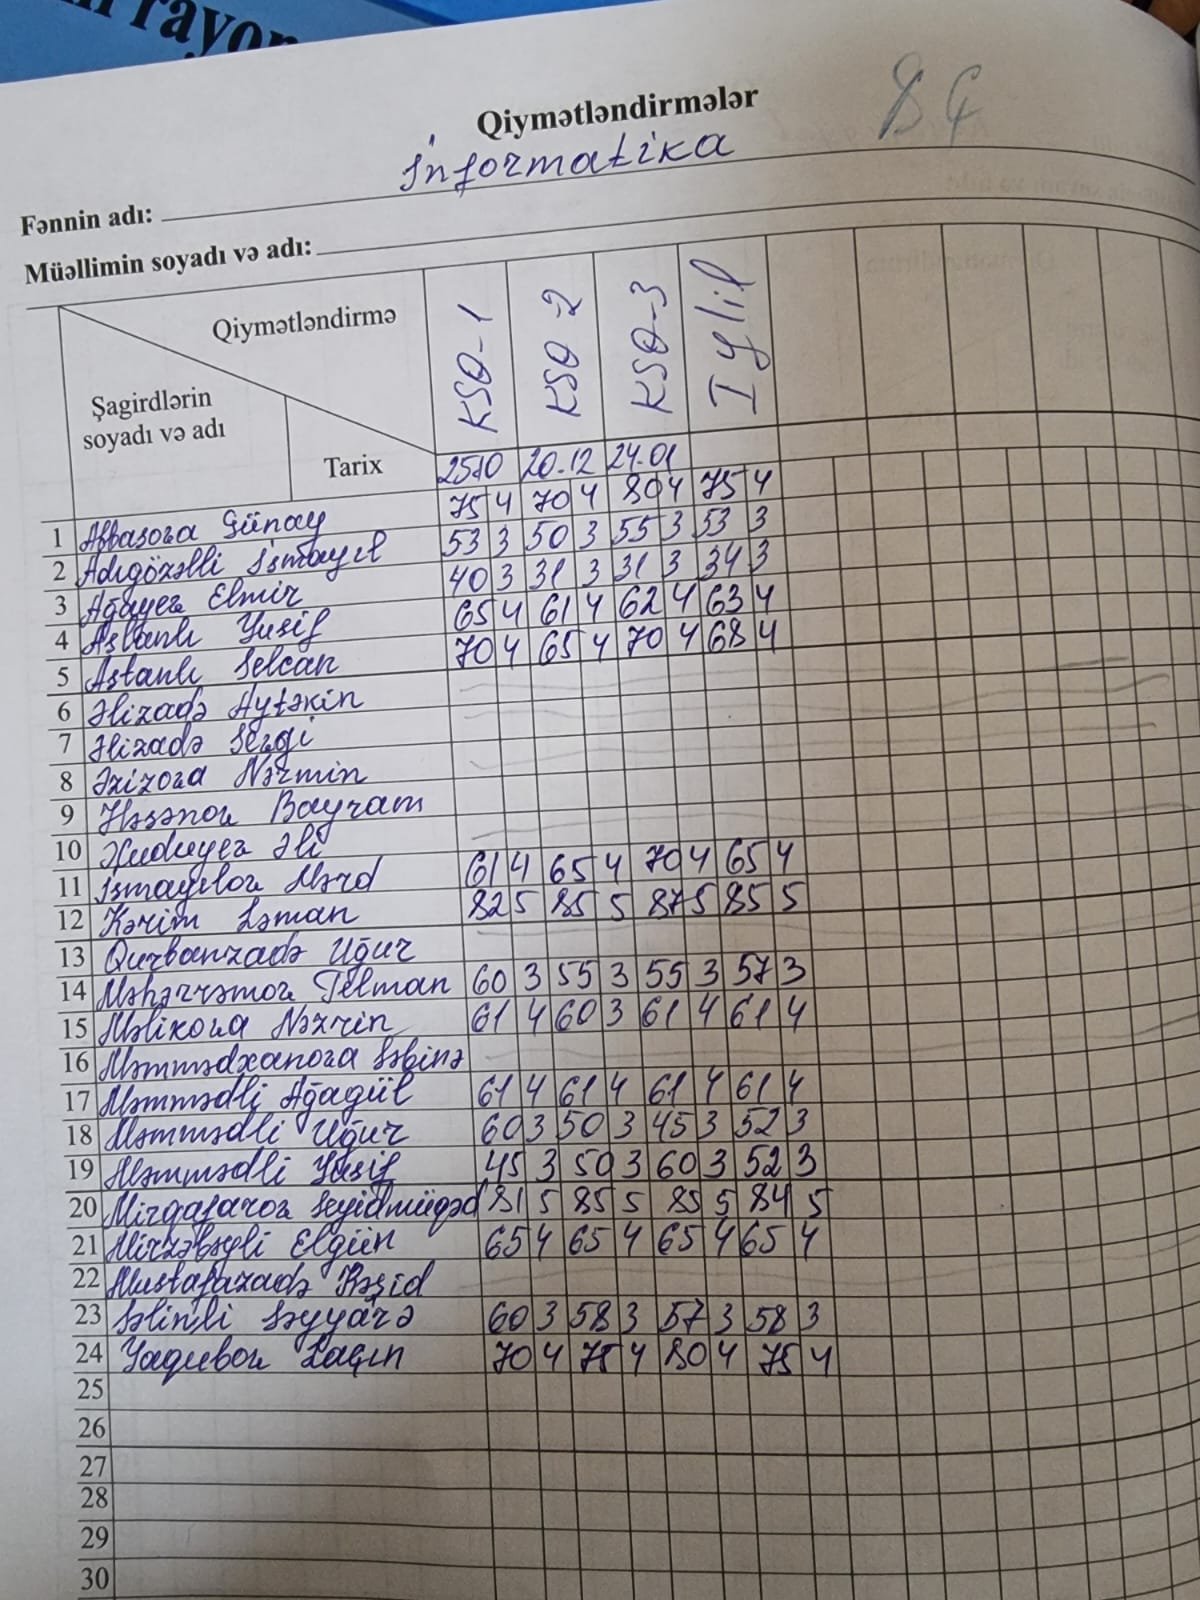 rayon
Qiymətləndirmələr
8 Ç
Fənnin adı: İnformatika
Müəllimin soyadı və adı:
Qiymətləndirmə KSQ-1 KSQ-2 KSQ-3 I yIil
Şagirdlərin soyadı və adı
Tarix 25.10 20.12 24.01
1 Abbasova Günay 75 4 70 4 80 4 75 4
2 Adıgözəlli İsmayıl 53 3 50 3 55 3 53 3
3 Ağayev Elmir 40 3 31 3 31 3 34 3
4 Aslanlı Yusif 65 4 61 4 62 4 63 4
5 Astanlı Selcan 70 4 65 4 70 4 68 4
6 Əlizadə Aytəkin
7 Əlizadə Sezgi
8 Əzizova Nərmin
9 Həsənov Bayram
10 Xuduyev Əli
11 İsmayılov Mərd 61 4 65 4 70 4 65 4
12 Kərim Ləman 82 5 85 5 87 5 85 5
13 Qurbanzadə Uğur
14 Məhərrəmov Telman 60 3 55 3 55 3 57 3
15 Məlikova Nəzrin 61 4 60 3 61 4 61 4
16 Məmmədxanova Səbinə
17 Məmmədli Ağagül 61 4 61 4 61 4 61 4
18 Məmmədli Uğur 60 3 50 3 45 3 52 3
19 Məmmədli Yusif 45 3 50 3 60 3 52 3
20 Mirqafarov Seyidmüqəd 81 5 85 5 85 5 84 5
21 Mirzəbəyli Elgün 65 4 65 4 65 4 65 4
22 Mustafazadə Rəşid
23 Səlimli Səyyarə 60 3 58 3 57 3 58 3
24 Yaqubov Laçın 70 4 75 4 80 4 75 4
25
26
27
28
29
30